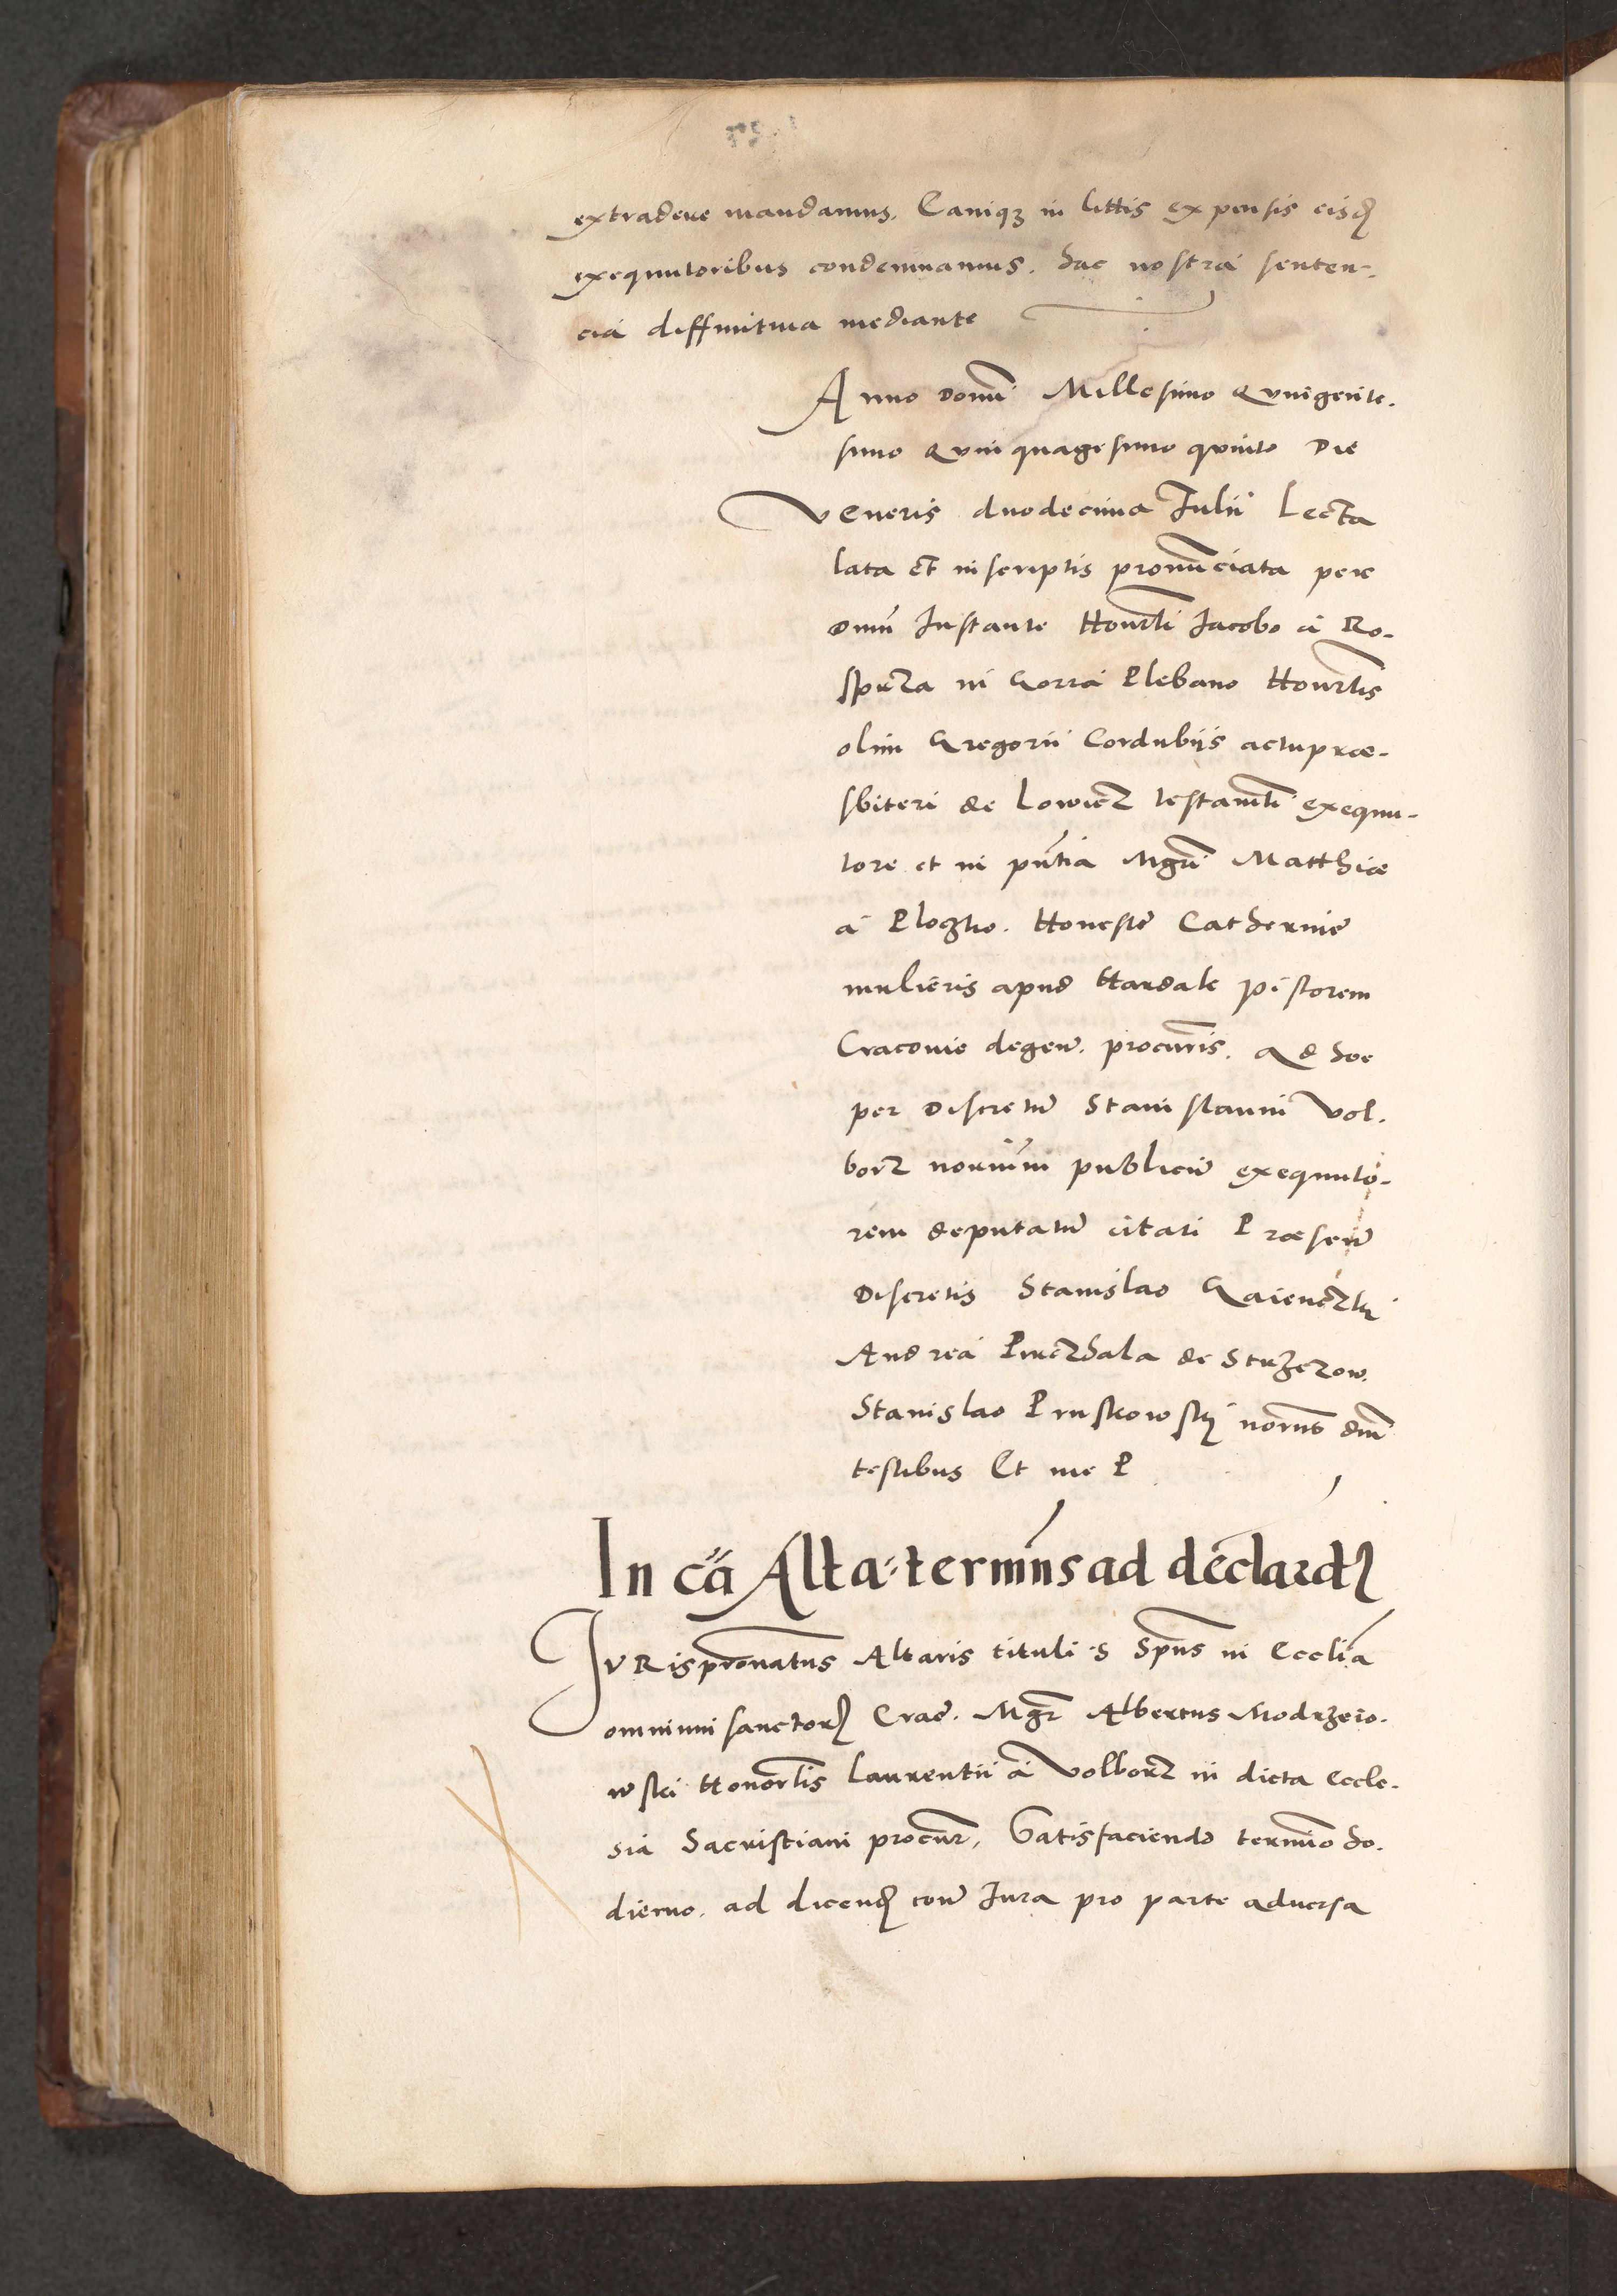 extradere mandamus. Eanique in littis expensis eisdem
exequutoribus condemnamus. hac nostra senten-
cia diffinitiua mediante
Anno Domi Millesimo Quingente-
simo Quinquagesimo quinto Die
Veneris duodecima Julii Lecta
lata et in scriptis pronunciata per
Dnm Instante Honrli Jacobo a Ro-
sprza in Gorra Plebano Honrlis
olim Gregorii Cordubÿs actuprae-
sbiteri de Lowicz testamti exequu-
tore et in pntia Mgri Matthiae
a Ploczko. Honeste Catherine
mulieris apud Handale pistorem
Cracovie degen. procuris. Ad hoc
per Discretum Stanislaum Vol-
borz norium publicum exequuto-
rem deputatum citati Praesen
Discretis Stanislao
Andrea de Strzezow.
Stanislao Pruskowskÿ noriis dm
testibus Et me P
In ca Alta: termins ad declarandum
JVRispronatus Altaris tituli S Spus in Ecclia
omnium sanctorum Crac. Mgr Albertus Modrzeio-
wski Honorlis Laurentii a Volborz in dicta Eccle-
sia Sacristiani procur. Satisfaciendo termino ho-
dierno. ad dicendum con Jura pro parte aduersa